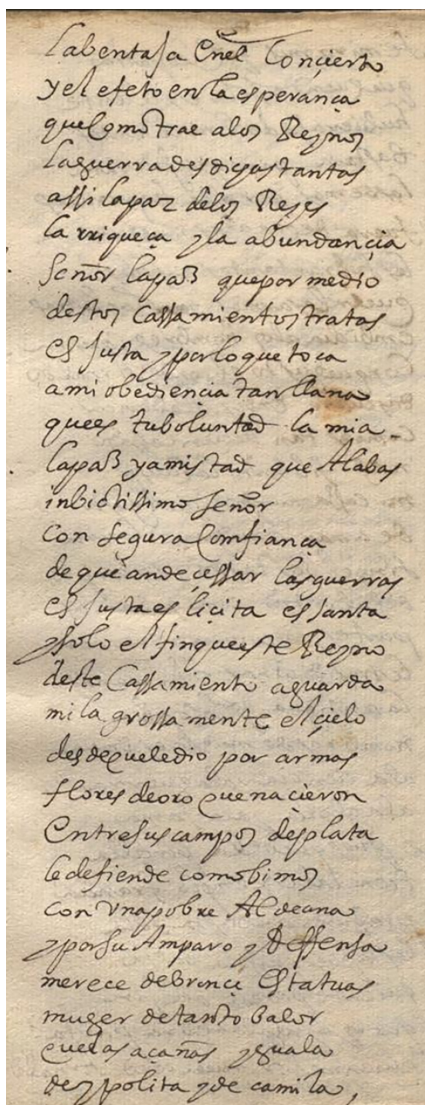 la bentaja en el Conçierto
y el efeto en la esperança
que Como trae a los Reynos
la guerra desdigas tantas
assi la paz de los Reyes
la rriqueça y la abundançia
señor la paz que por medio
destos Cassamientos tratas
es justa y por lo que toca
a mi obediencia tan llana
que es tu boluntad la mia
la paz y amistad que Alabas
inbictissimo señor
con segura Comfiança
de que an de çessar las guerras
es justa es liçita es santa
y solo el fin que este Reyno
deste Cassamiento aguarda
milagrossamente el çielo
desde que le dio por armas
flores de oro que naçieron
Entre sus campos de plata
le defiende como bimos
con una pobre Aldeana
y por su Amparo y Deffensa
mereçe de bronçe Estatuas
muger de tanto balor
que las açañas yguala
de ypolita y de camila,